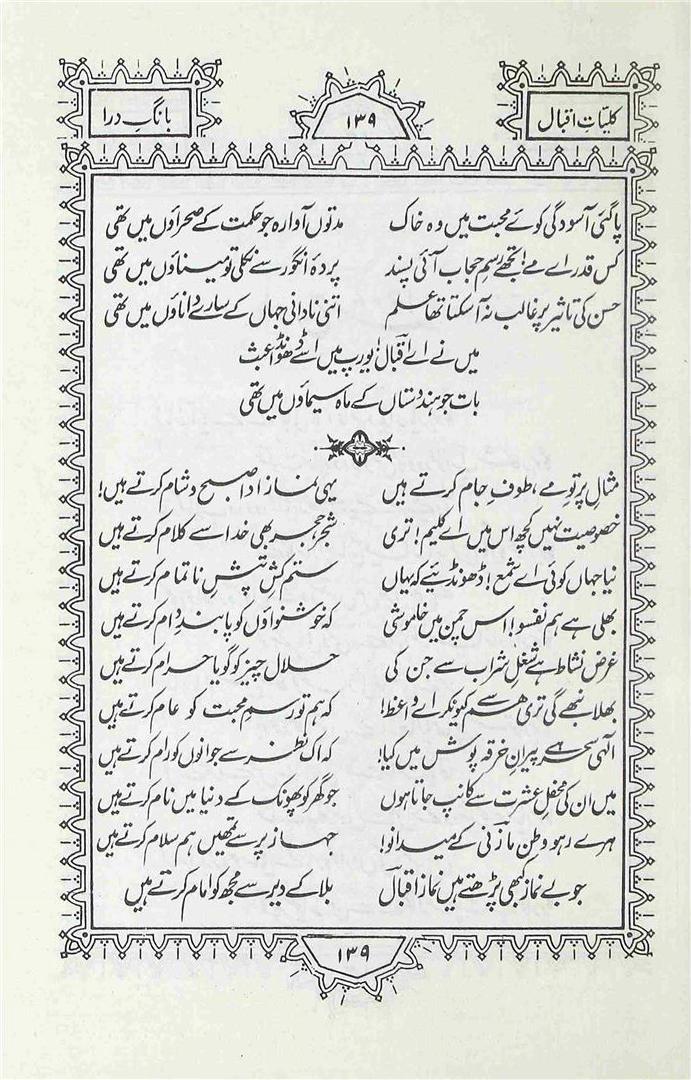 کلیاتِ اقبال
۱۳۹
بانگِ درا
پا گئی آسودگی کوئے محبت میں وہ خاک مدتوں آوارہ جو حکمت کے صحراؤں میں تھی
کس قدر اے مے! تجھے رسمِ حجاب آئی پسند پردۂ انگور سے نکلی تو میناؤں میں تھی
حسن کی تاثیر پر غالب نہ آ سکتا تھا علم اتنی نادانی جہاں کے سارے داناؤں میں تھی
میں نے اے اقبالؔ یورپ میں اسے ڈھونڈا عبث
بات جو ہندوستاں کے ماہ سیماؤں میں تھی
مثالِ پرتوِ مے، طوفِ جام کرتے ہیں یہی نماز ادا صبح و شام کرتے ہیں!
خصوصیت نہیں کچھ اس میں اے کلیم! تری شجر حجر بھی خدا سے کلام کرتے ہیں
نیا جہاں کوئی اے شمع! ڈھونڈئیے کہ یہاں ستم کشِ تپشِ ناتمام کرتے ہیں
بھلی ہے ہم نفسو! اس چمن میں خاموشی کہ خوشنواؤں کو پابندِ دام کرتے ہیں
غرض نشاط ہے شغلِ شراب سے جن کی حلال چیز کو گویا حرام کرتے ہیں
بھلا نبھے گی تری ہم سے کیونکر اے واعظ! کہ ہم تو رسمِ محبت کو عام کرتے ہیں
الٰہی سحر ہے پیرانِ خرقہ پوش میں کیا! کہ اک نظر سے جوانوں کو رام کرتے ہیں
میں ان کی محفلِ عشرت سے کانپ جاتا ہوں جو گھر کو پھونک کے دنیا میں نام کرتے ہیں
ہرے رہو وطنِ مازنی کے میدانو! جہاز پر سے تمھیں ہم سلام کرتے ہیں
جو بے نماز کبھی پڑھتے ہیں نماز اقبالؔ بلا کے دیر سے مجھ کو امام کرتے ہیں
۱۳۹